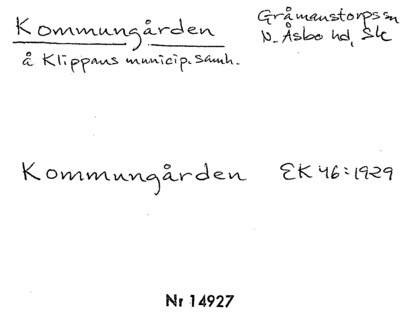 Kommungården
Gråmanstorps sn
N. Åsbo hd, Sk
å Klippans municip. samh.
Kommungården EK 46:1929
Nr 14927